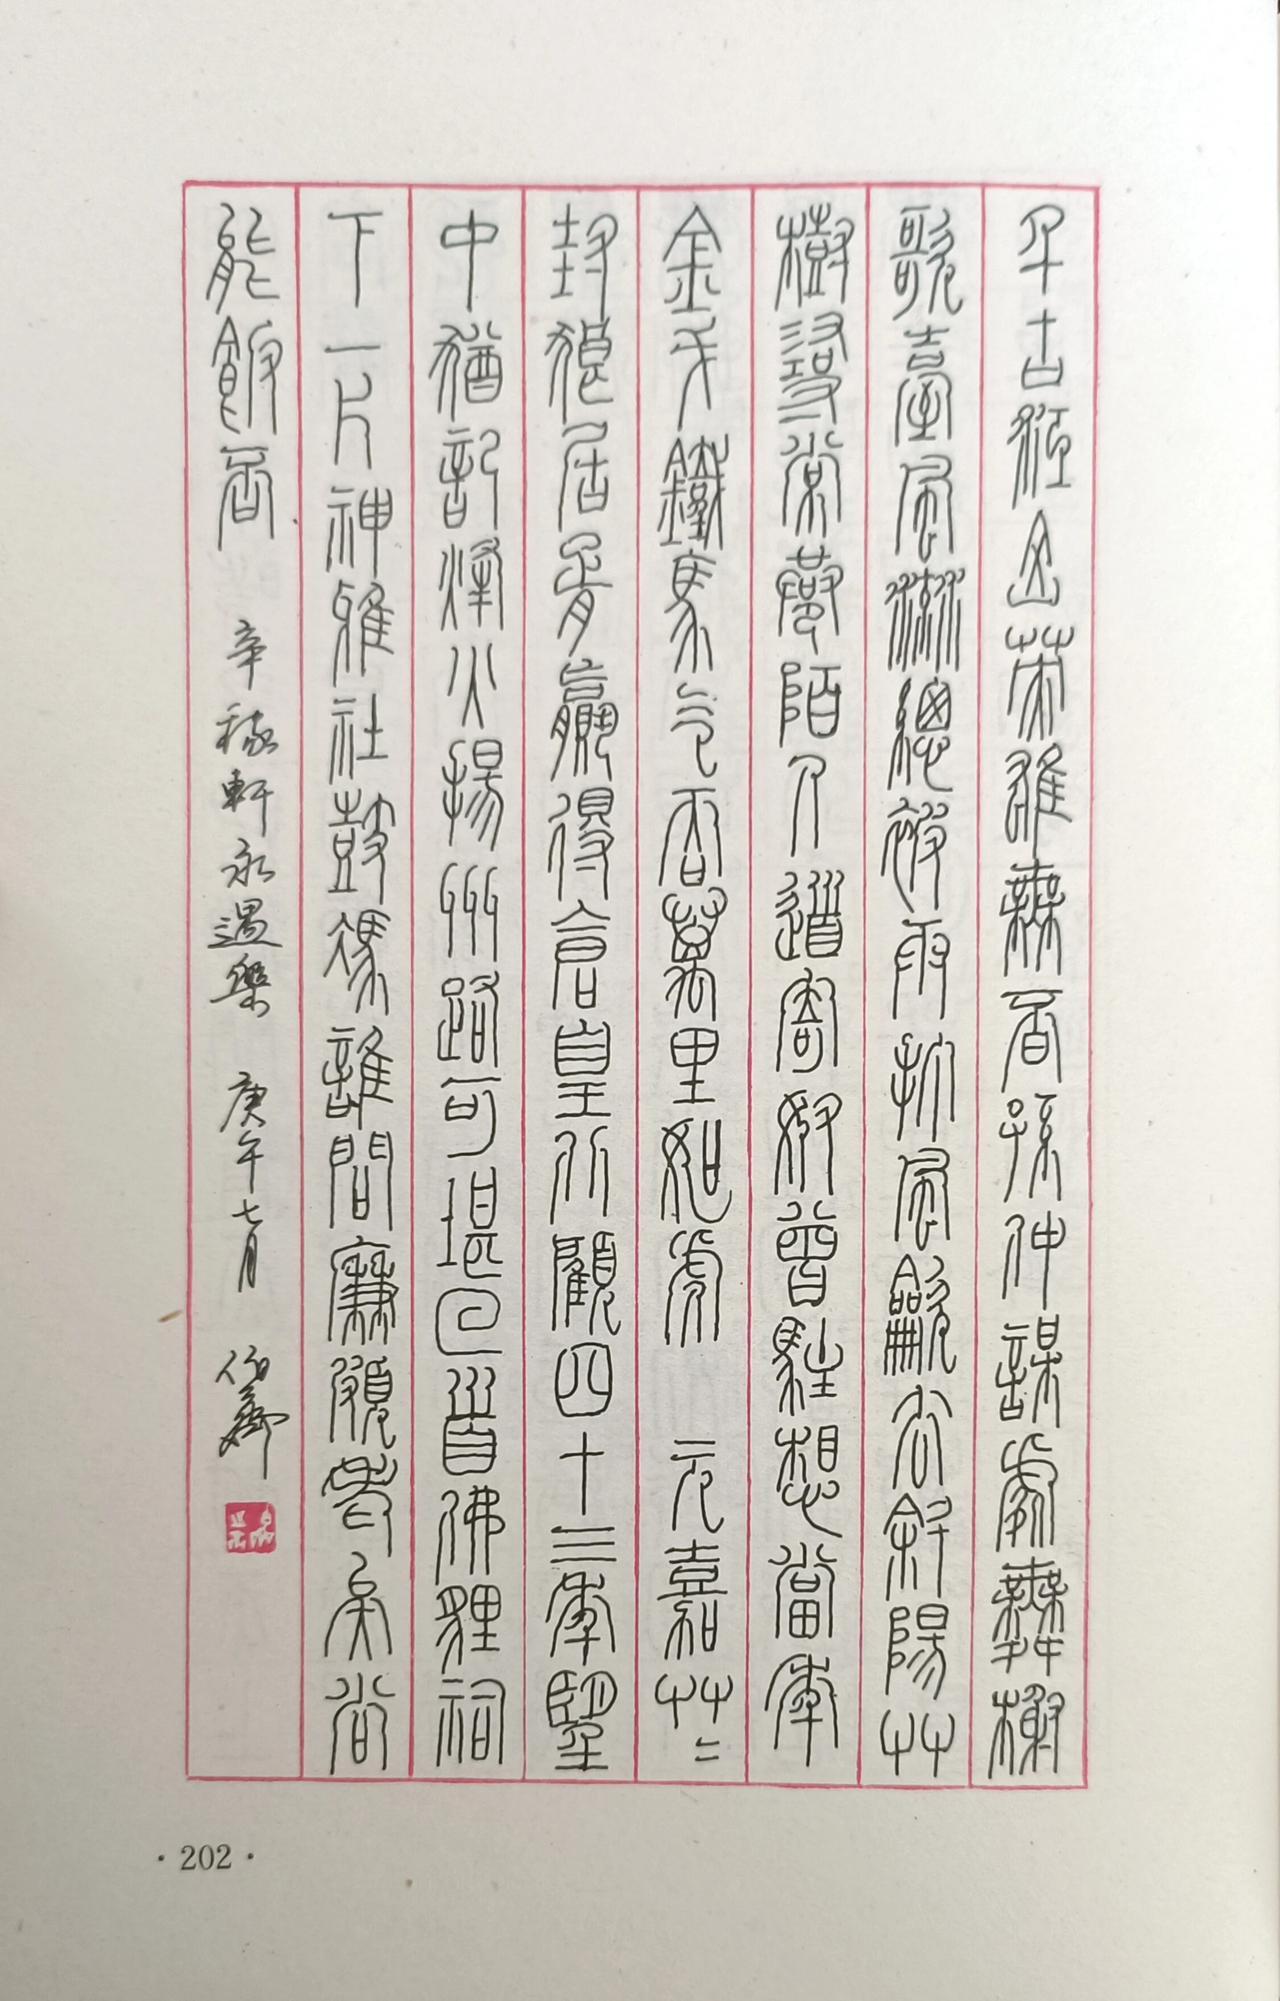 千古江山英雄無覓孫仲謀處舞榭
歌臺風流總被雨打風龡去斜陽艸
樹尋常巷陌人道寄奴曾駐想當年
金戈鐵馬气吞萬里如虎 元嘉艸〻
封狼居胥贏得倉皇北顧四十三年望
中猶記烽火揚州路可堪回首佛貍祠
下一片神鴉社鼓憑誰問廉頗老矣尚
能飯否 辛稼軒永遇樂 庚午七月
·202·